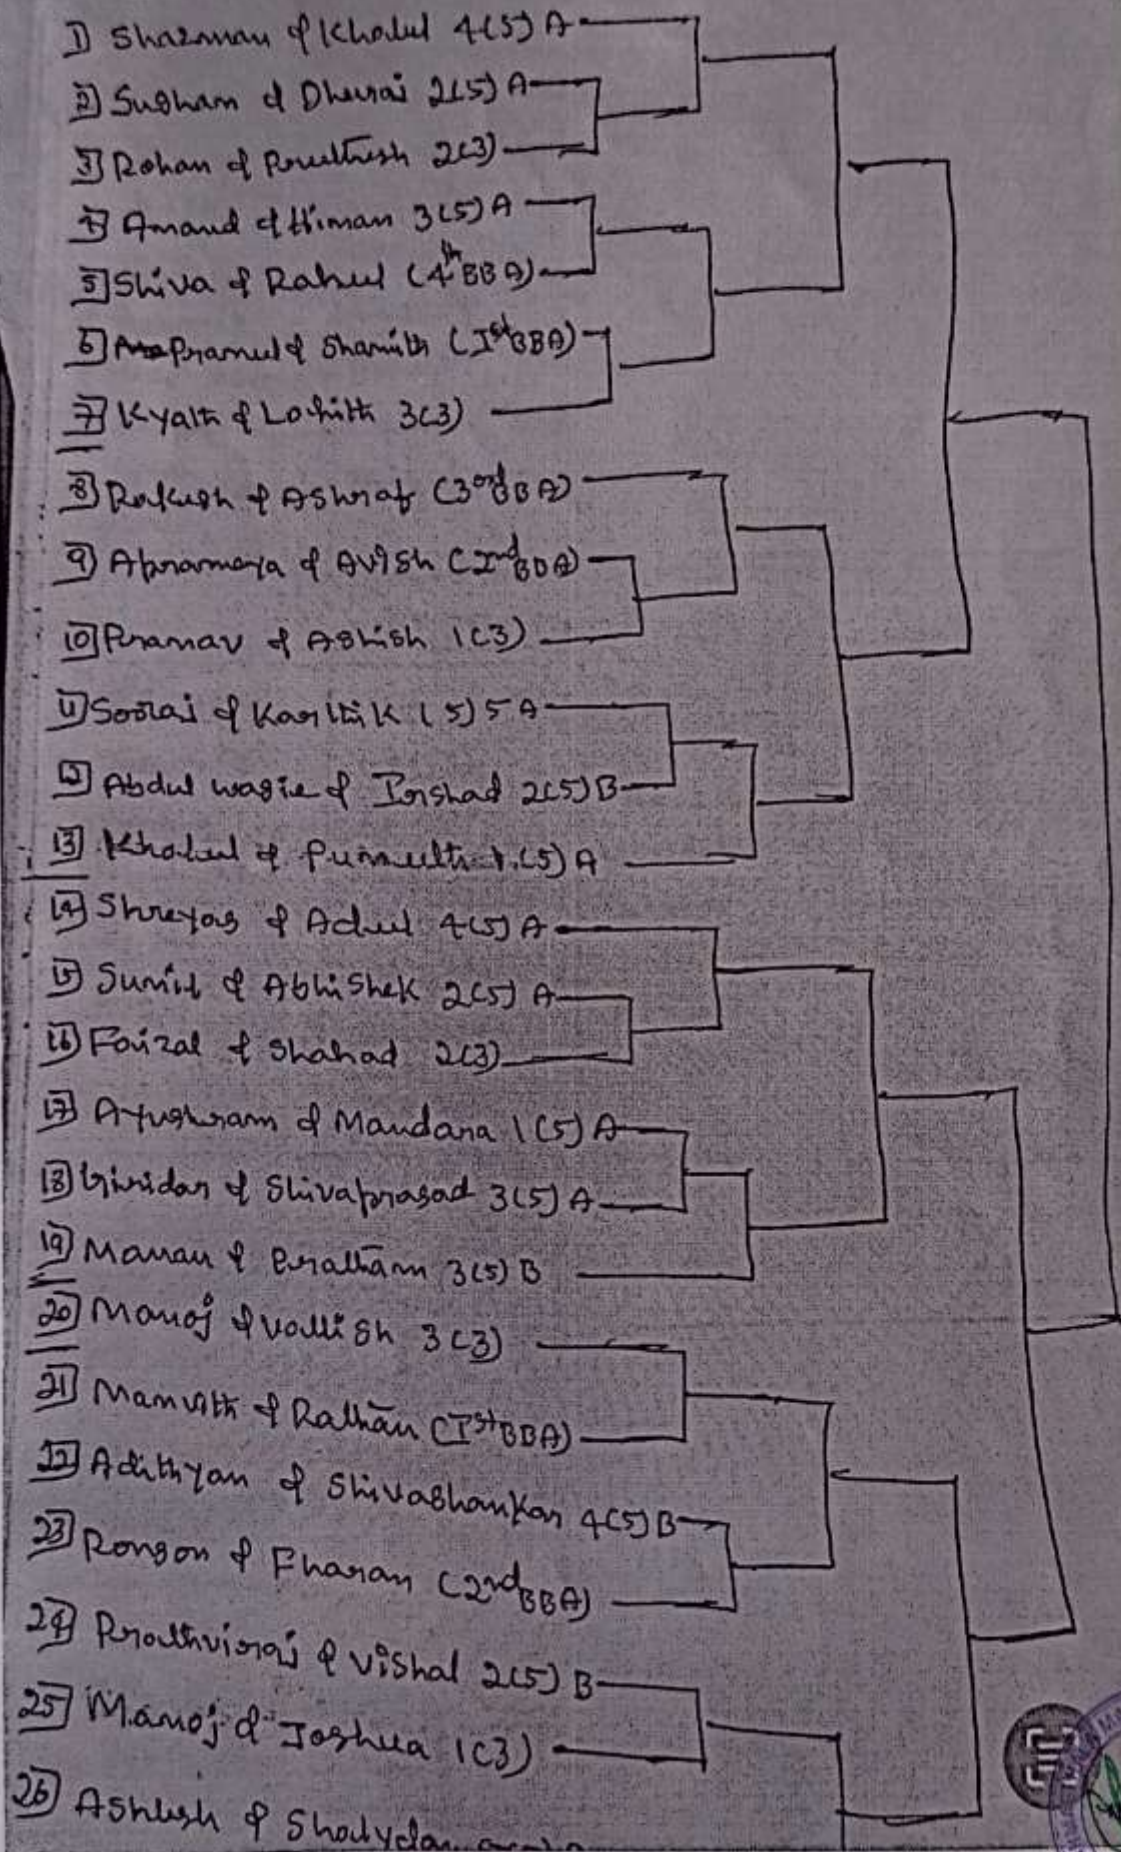 1) Sharman & Khalid 4(5) A
2) Susham & Dheeraj 2(5) A
3) Rohan & 2(3)
4) Anand & Himan 3(5) A
5) Shiva & Rahul (4th BBA)
6) Pramul & Shamith (Ist BBA)
7) Kyath & Lohith 3(3)
8) Rakesh & Ashraf (3rd BBA)
9) Apramaya & Avish (2nd BBA)
10) Pranav & Ashish 1(3)
11) Sooraj & Karthik (5) 5 A
12) Abdul & Irshad 2(5) B
13) Khalid & 1(5) A
14) Shreyas & 4(5) A
15) Sunil & Abhishek 2(5) A
16) Faizal & Shahad 2(3)
17) Ayushram & Mandara 1(5) A
18) Giridar & Shivaprasad 3(5) A
19) Manan & Pratham 3(5) B
20) Manoj & Vallish 3(3)
21) Manvith & Rathan (Ist BBA)
22) Adithyan & Shivashankar 4(5) B
23) Ronson & Fharan (2nd BBA)
24) Prathviraj & Vishal 2(5) B
25) Manoj & Joshua 1(3)
26) &